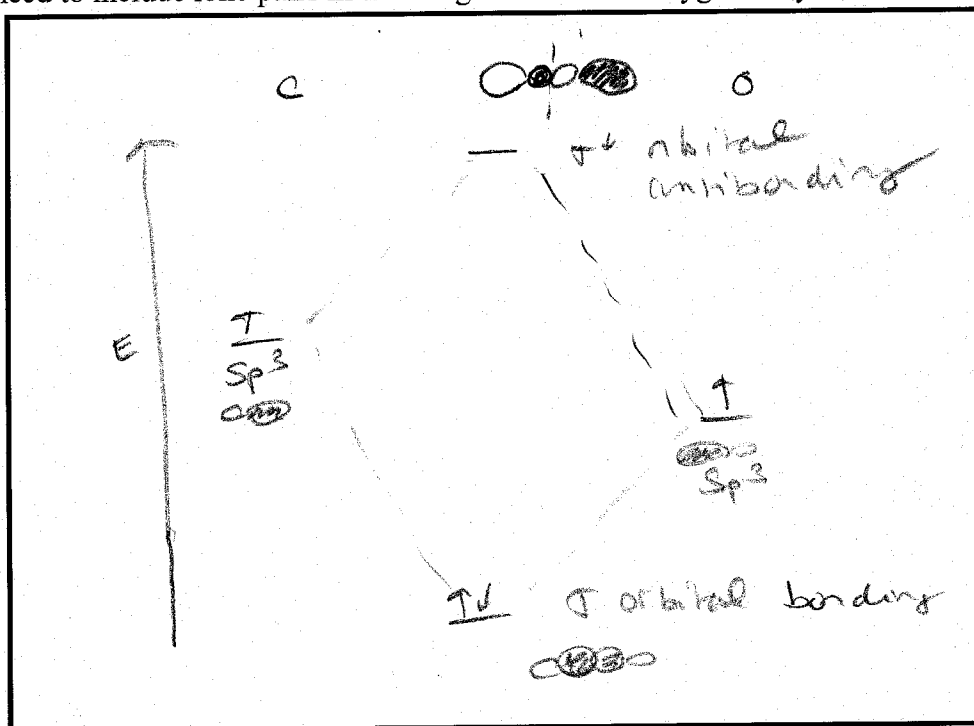 C O
σ* orbital
antibonding
E
↑
sp³
↑
sp³
↑↓ σ orbital bonding